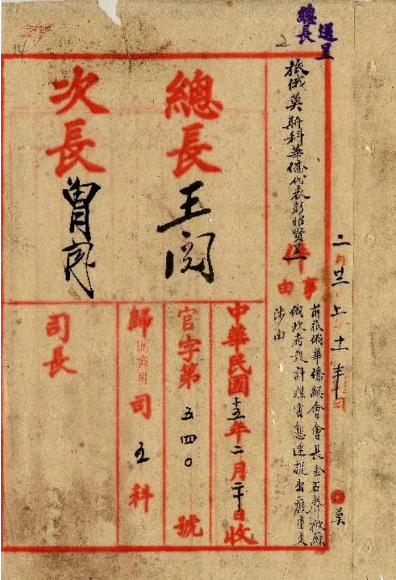 逕呈
總長
旅俄莫斯科華僑代表彭昭賢呈
二月廿二日上十一半
件
事由
前旅俄華僑總會會長金石聲被蘇
俄政府設計謀害懇迅提出嚴重交
涉由
總長
王閱
次長
曾閱
中華民國十五年二月二十日收
官字第五四〇號
歸通商司五科
司長